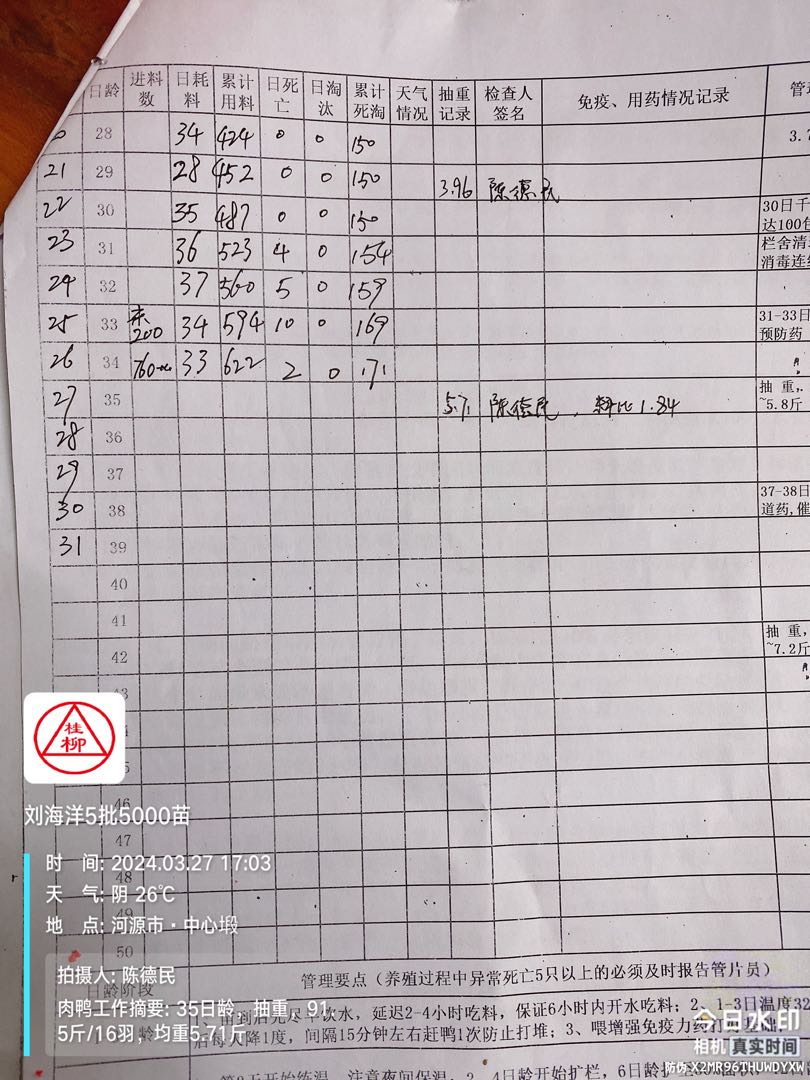 日龄 进料数 日耗料 累计用料 日死亡 日淘汰 累计死淘 天气情况 抽重记录 检查人签名 免疫、用药情况记录
28 34 424 0 0 150 3.
21 29 28 452 0 0 150 3.96 陈德民
22 30 35 487 0 0 150 30日千
达100包
23 31 36 523 4 0 154 栏舍清
消毒连续
24 32 37 560 5 0 159
25 33 200 34 594 10 0 169 31-33日
预防药
26 34 33 622 2 0 171
27 35 5.71 陈德民，料比1.84 抽重,
~5.8斤
28 36
29 37
30 38 37-38日
道药,催
31 39
40
41
42 抽重,
~7.2斤
43
46
47
48
49
50
桂柳
刘海洋5批5000苗
时 间: 2024.03.27 17:03
天 气: 阴 26℃
地 点: 河源市·中心塅
拍摄人: 陈德民
肉鸭工作摘要: 35日龄，抽重，91.
5斤/16羽，均重5.71斤
日龄阶段 管理要点（养殖过程中异常死亡5只以上的必须及时报告管片员）
苗到后先尽早饮水，延迟2-4小时吃料，保证6小时内开水吃料；2、1-3日温度32
后每天降1度，间隔15分钟左右赶鸭1次防止打堆；3、喂增强免疫力药打好基础
注意夜间保温，2、4日龄开始扩栏，6日龄扩
今日水印
相机 真实时间
防伪 X2MR96THUWDYXW